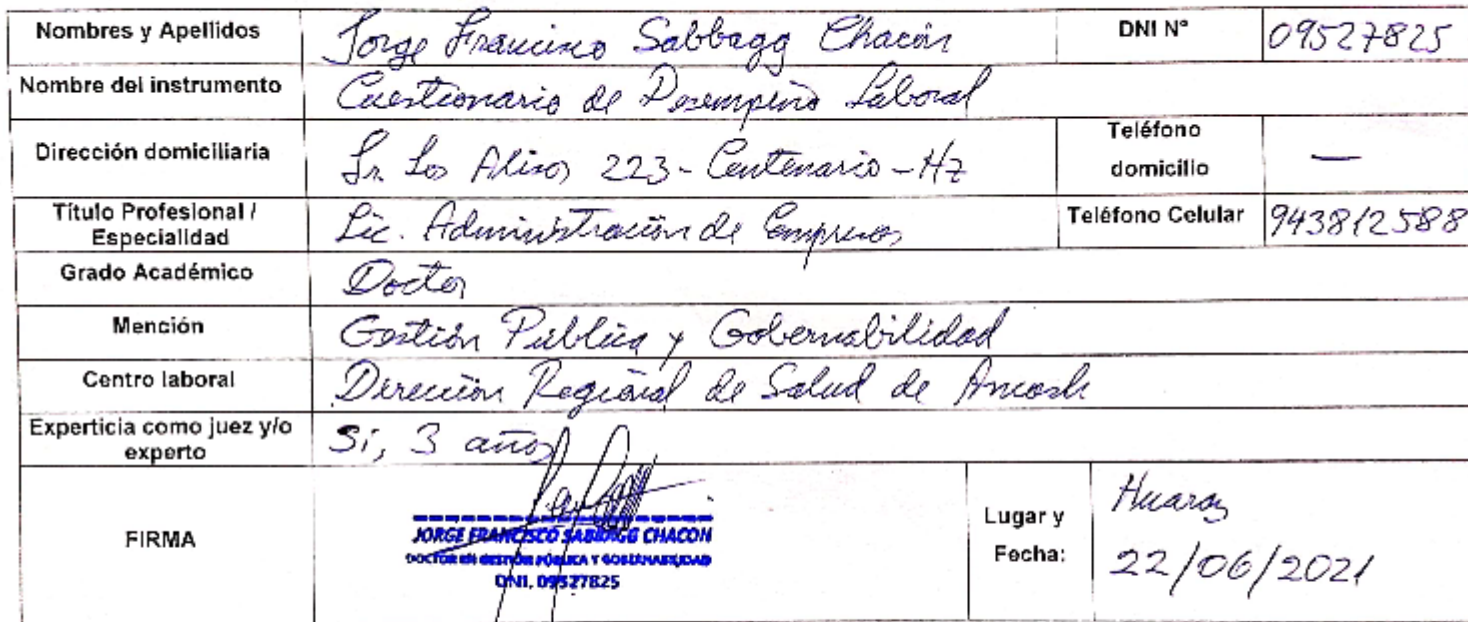 Nombres y Apellidos Jorge Francisco Sabbagg Chacón DNI N° 09527825
Nombre del instrumento Cuestionario de Desempeño Laboral
Dirección domiciliaria Jr. Los Alisos 223 - Centenario - Hz Teléfono domicilio —
Título Profesional / Especialidad Lic. Administración de Empresas Teléfono Celular 943812588
Grado Académico Doctor
Mención Gestión Pública y Gobernabilidad
Centro laboral Dirección Regional de Salud de Ancash
Experticia como juez y/o experto Si, 3 años
FIRMA
JORGE FRANCISCO SABBAGG CHACON
DOCTOR EN GESTIÓN PÚBLICA Y GOBERNABILIDAD
DNI. 09527825
Lugar y Fecha: Huaraz
22/06/2021